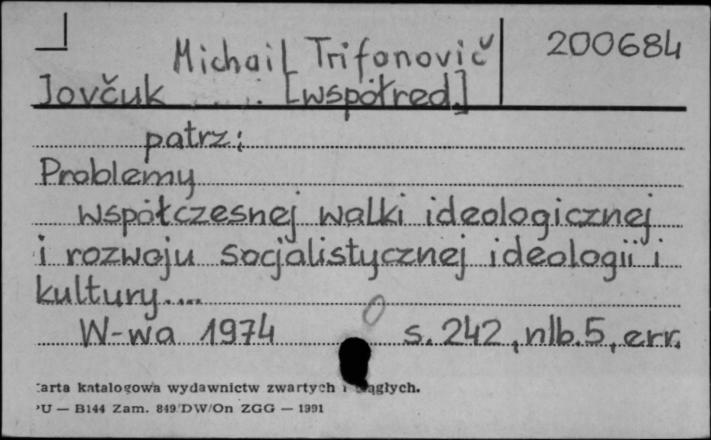 Michail Trifonovič 200684
Jovčuk ..... [współred.]
patrz:
Problemy
współczesnej walki ideologicznej
i rozwoju socjalistycznej ideologii i
kultury....
W-wa 1974 s. 242, nlb. 5, err.
arta katalogowa wydawnictw zwartych i ągłych.
PU — B144 Zam. 849/DW/On ZGG — 1991